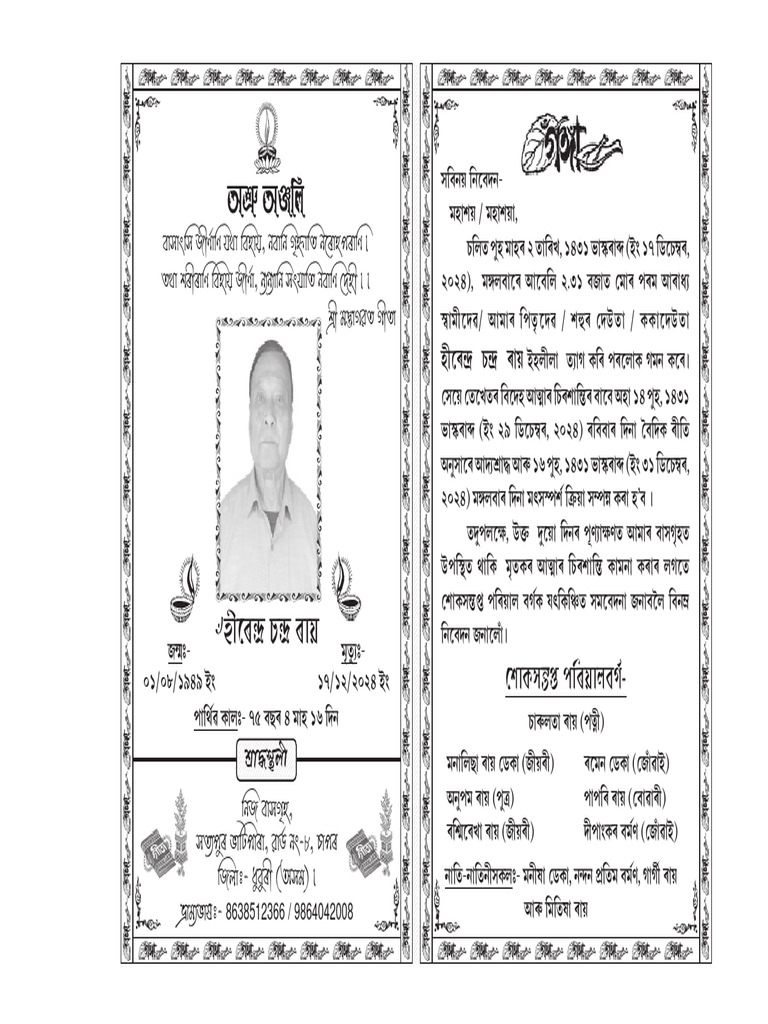 অশ্রু অঞ্জলি
বাসাংসি জীৰ্ণাণি যথা বিহায়, নবানি গৃহ্ণাতি নৰোহপৰাণি।
তথা শৰীৰাণি বিহায় জীৰ্ণা, ন্যন্যানি সংযাতি নবানি দেহী।।
শ্ৰী মদ্ভাগৱত গীতা
৺হীৰেন্দ্ৰ চন্দ্ৰ ৰায়
জন্মঃ-
মৃত্যুঃ-
০১/০৮/১৯৪৯ ইং
১৭/১২/২০২৪ ইং
পাৰ্থিৱ কালঃ- ৭৫ বছৰ ৪ মাহ ১৬ দিন
শ্ৰাদ্ধস্থলী
নিজ বাসগৃহ,
সত্যপুৰ ভাটিপাৰা, ৱাৰ্ড নং-৮, চাপৰ
জিলাঃ- ধুবুৰী (অসম)।
ভ্ৰাম্যভাষঃ- 8638512366 / 9864042008
গঁঙ্গা
সবিনয় নিবেদন-
মহাশয় / মহাশয়া,
চলিত পুহ মাহৰ ২ তাৰিখ, ১৪৩১ ভাস্কৰাব্দ (ইং ১৭ ডিচেম্বৰ,
২০২৪), মঙ্গলবাৰে আবেলি ২.৩১ বজাত মোৰ পৰম আৰাধ্য
স্বামীদেৱ/ আমাৰ পিতৃদেৱ / শহুৰ দেউতা / ককাদেউতা
হীৰেন্দ্ৰ চন্দ্ৰ ৰায় ইহলীলা ত্যাগ কৰি পৰলোক গমন কৰে।
সেয়ে তেখেতৰ বিদেহ আত্মাৰ চিৰশান্তিৰ বাবে অহা ১৪ পুহ, ১৪৩১
ভাস্কৰাব্দ (ইং ২৯ ডিচেম্বৰ, ২০২৪) ৰবিবাৰ দিনা বৈদিক ৰীতি
অনুসাৰে আদ্যশ্ৰাদ্ধ আৰু ১৬ পুহ, ১৪৩১ ভাস্কৰাব্দ (ইং ৩১ ডিচেম্বৰ,
২০২৪) মঙ্গলবাৰ দিনা মৎসস্পৰ্শ ক্ৰিয়া সম্পন্ন কৰা হ'ব ।
তদুপলক্ষে, উক্ত দুয়ো দিনৰ পূণ্যাক্ষণত আমাৰ বাসগৃহত
উপস্থিত থাকি মৃতকৰ আত্মাৰ চিৰশান্তি কামনা কৰাৰ লগতে
শোকসন্তপ্ত পৰিয়াল বৰ্গক যৎকিঞ্চিত সমবেদনা জনাবলৈ বিনম্ৰ
নিবেদন জনালোঁ।
শোকসন্তপ্ত পৰিয়ালবৰ্গ-
চাৰুলতা ৰায় (পত্নী)
মনালিছা ৰায় ডেকা (জীয়ৰী)
ৰমেন ডেকা (জোঁৱাই)
অনুপম ৰায় (পুত্ৰ)
পাপৰি ৰায় (বোৱাৰী)
ৰশ্মিৰেখা ৰায় (জীয়ৰী)
দীপাংকৰ বৰ্মণ (জোঁৱাই)
নাতি-নাতিনীসকলঃ- মনীষা ডেকা, নন্দন প্ৰতিম বৰ্মণ, গাৰ্গী ৰায়
আৰু মিতিষা ৰায়